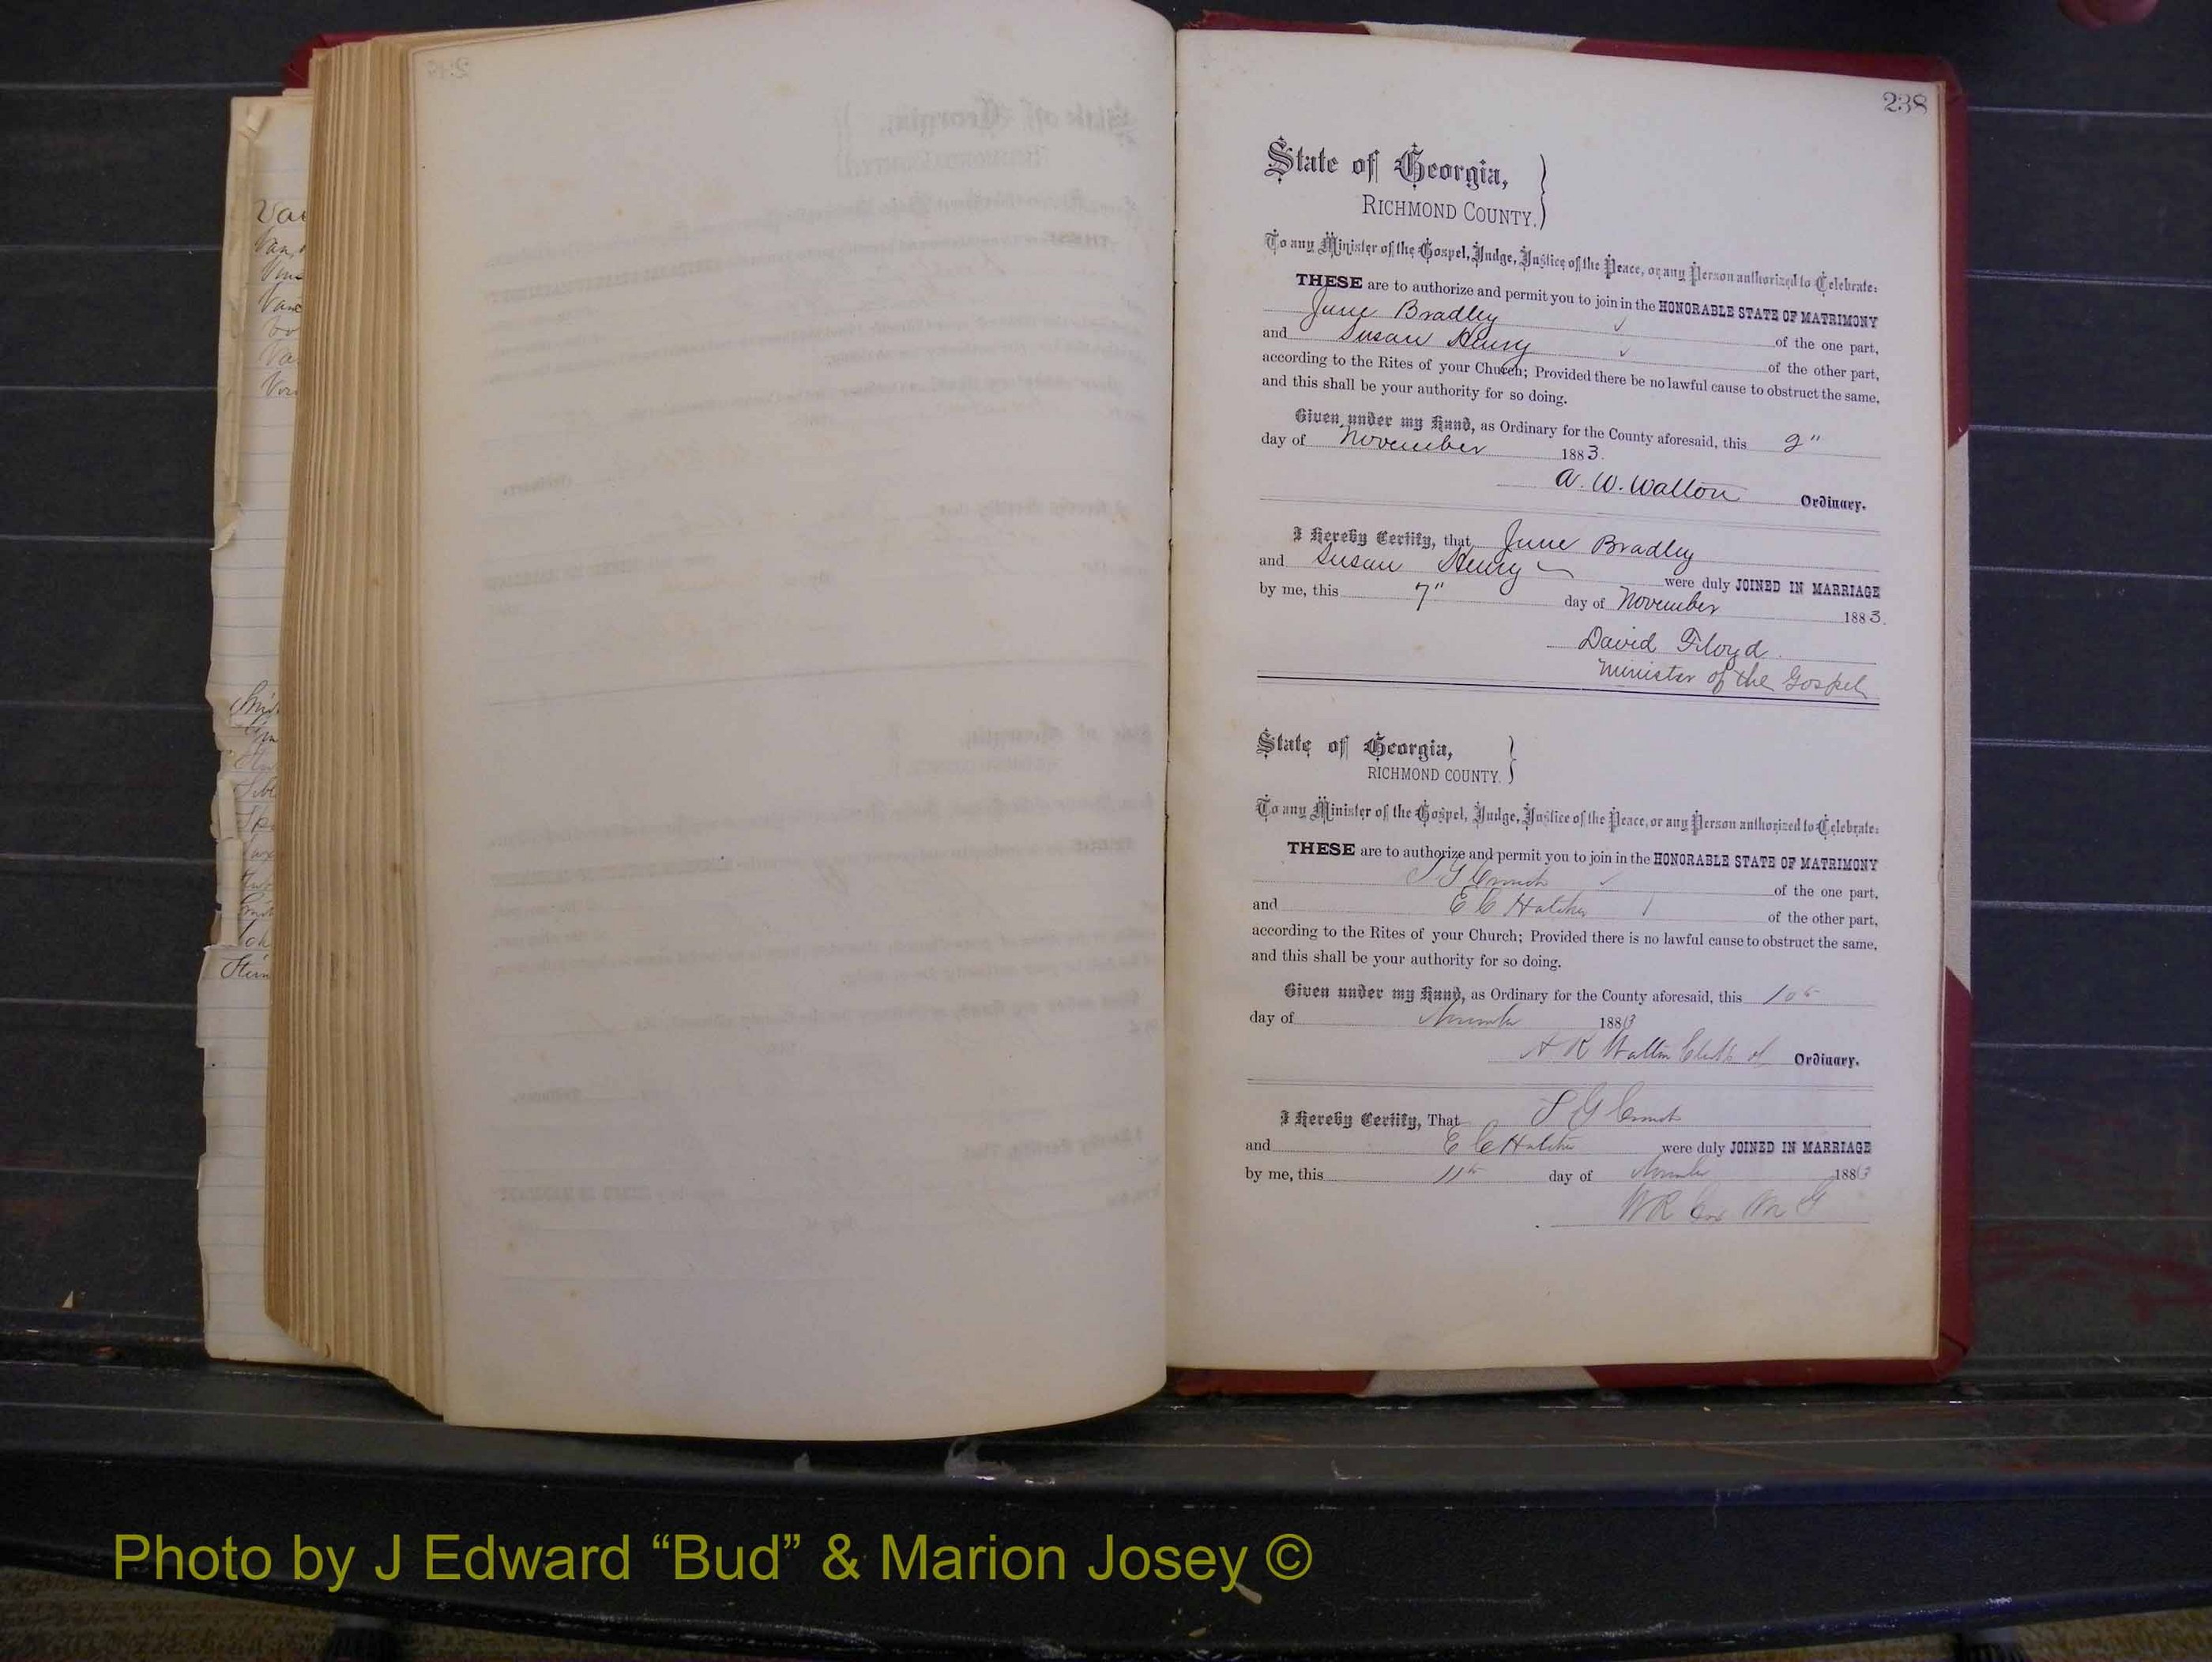 238
State of Georgia,
RICHMOND COUNTY.
To any Minister of the Gospel, Judge, Justice of the Peace, or any Person authorized to Celebrate:
THESE are to authorize and permit you to join in the HONORABLE STATE OF MATRIMONY
June Bradley of the one part,
and Susan Henry of the other part,
according to the Rites of your Church; Provided there be no lawful cause to obstruct the same,
and this shall be your authority for so doing.
Given under my Hand, as Ordinary for the County aforesaid, this 2"
day of November 1883.
A. W. Walton Ordinary.
I Hereby Certify, that June Bradley
and Susan Henry were duly JOINED IN MARRIAGE
by me, this 7" day of November 1883.
David Floyd.
Minister of the Gospel
State of Georgia,
RICHMOND COUNTY.
To any Minister of the Gospel, Judge, Justice of the Peace, or any Person authorized to Celebrate:
THESE are to authorize and permit you to join in the HONORABLE STATE OF MATRIMONY
of the one part,
and E C Hatcher of the other part,
according to the Rites of your Church; Provided there is no lawful cause to obstruct the same,
and this shall be your authority for so doing.
Given under my Hand, as Ordinary for the County aforesaid, this 10th
day of November 1883
A R Walton Clerk of Ordinary.
I Hereby Certify, That
and E C Hatcher were duly JOINED IN MARRIAGE
by me, this 11th day of November 1883
W R Cox M G
Photo by J Edward “Bud” & Marion Josey ©